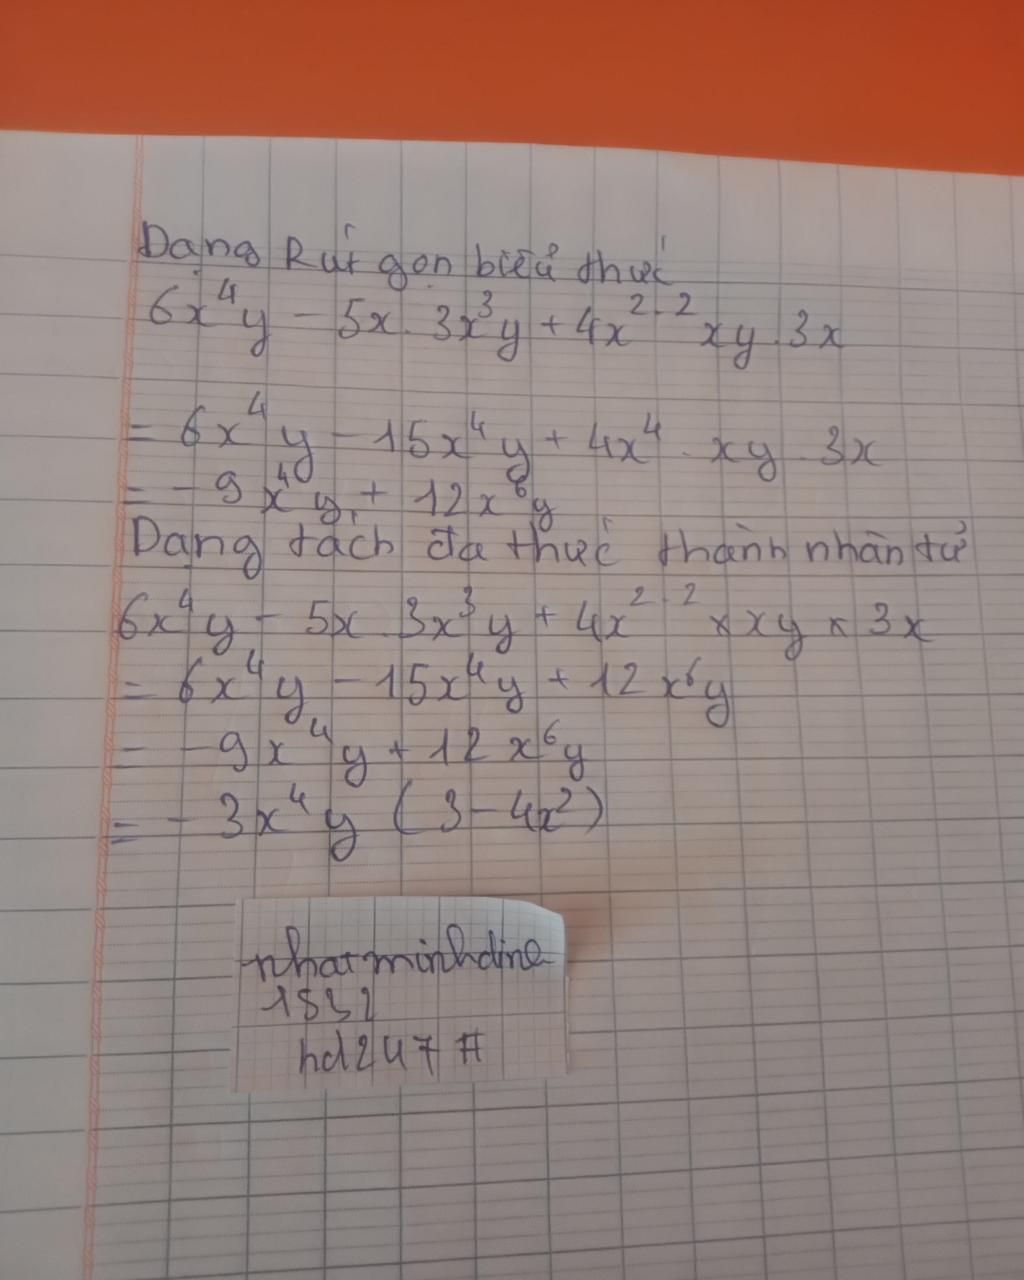 Dạng Rút gọn biểu thức
6x⁴y - 5x . 3x³y + 4x²·² xy . 3x
= 6x⁴y - 15x⁴y + 4x⁴ . xy . 3x
= -9x⁴y + 12x⁶y
Dạng tách đa thức thành nhân tử
6x⁴y - 5x . 3x³y + 4x²·² × xy × 3x
= 6x⁴y - 15x⁴y + 12x⁶y
= -9x⁴y + 12x⁶y
= -3x⁴y (3 - 4x²)
nhatminhdine
1832
hd247#